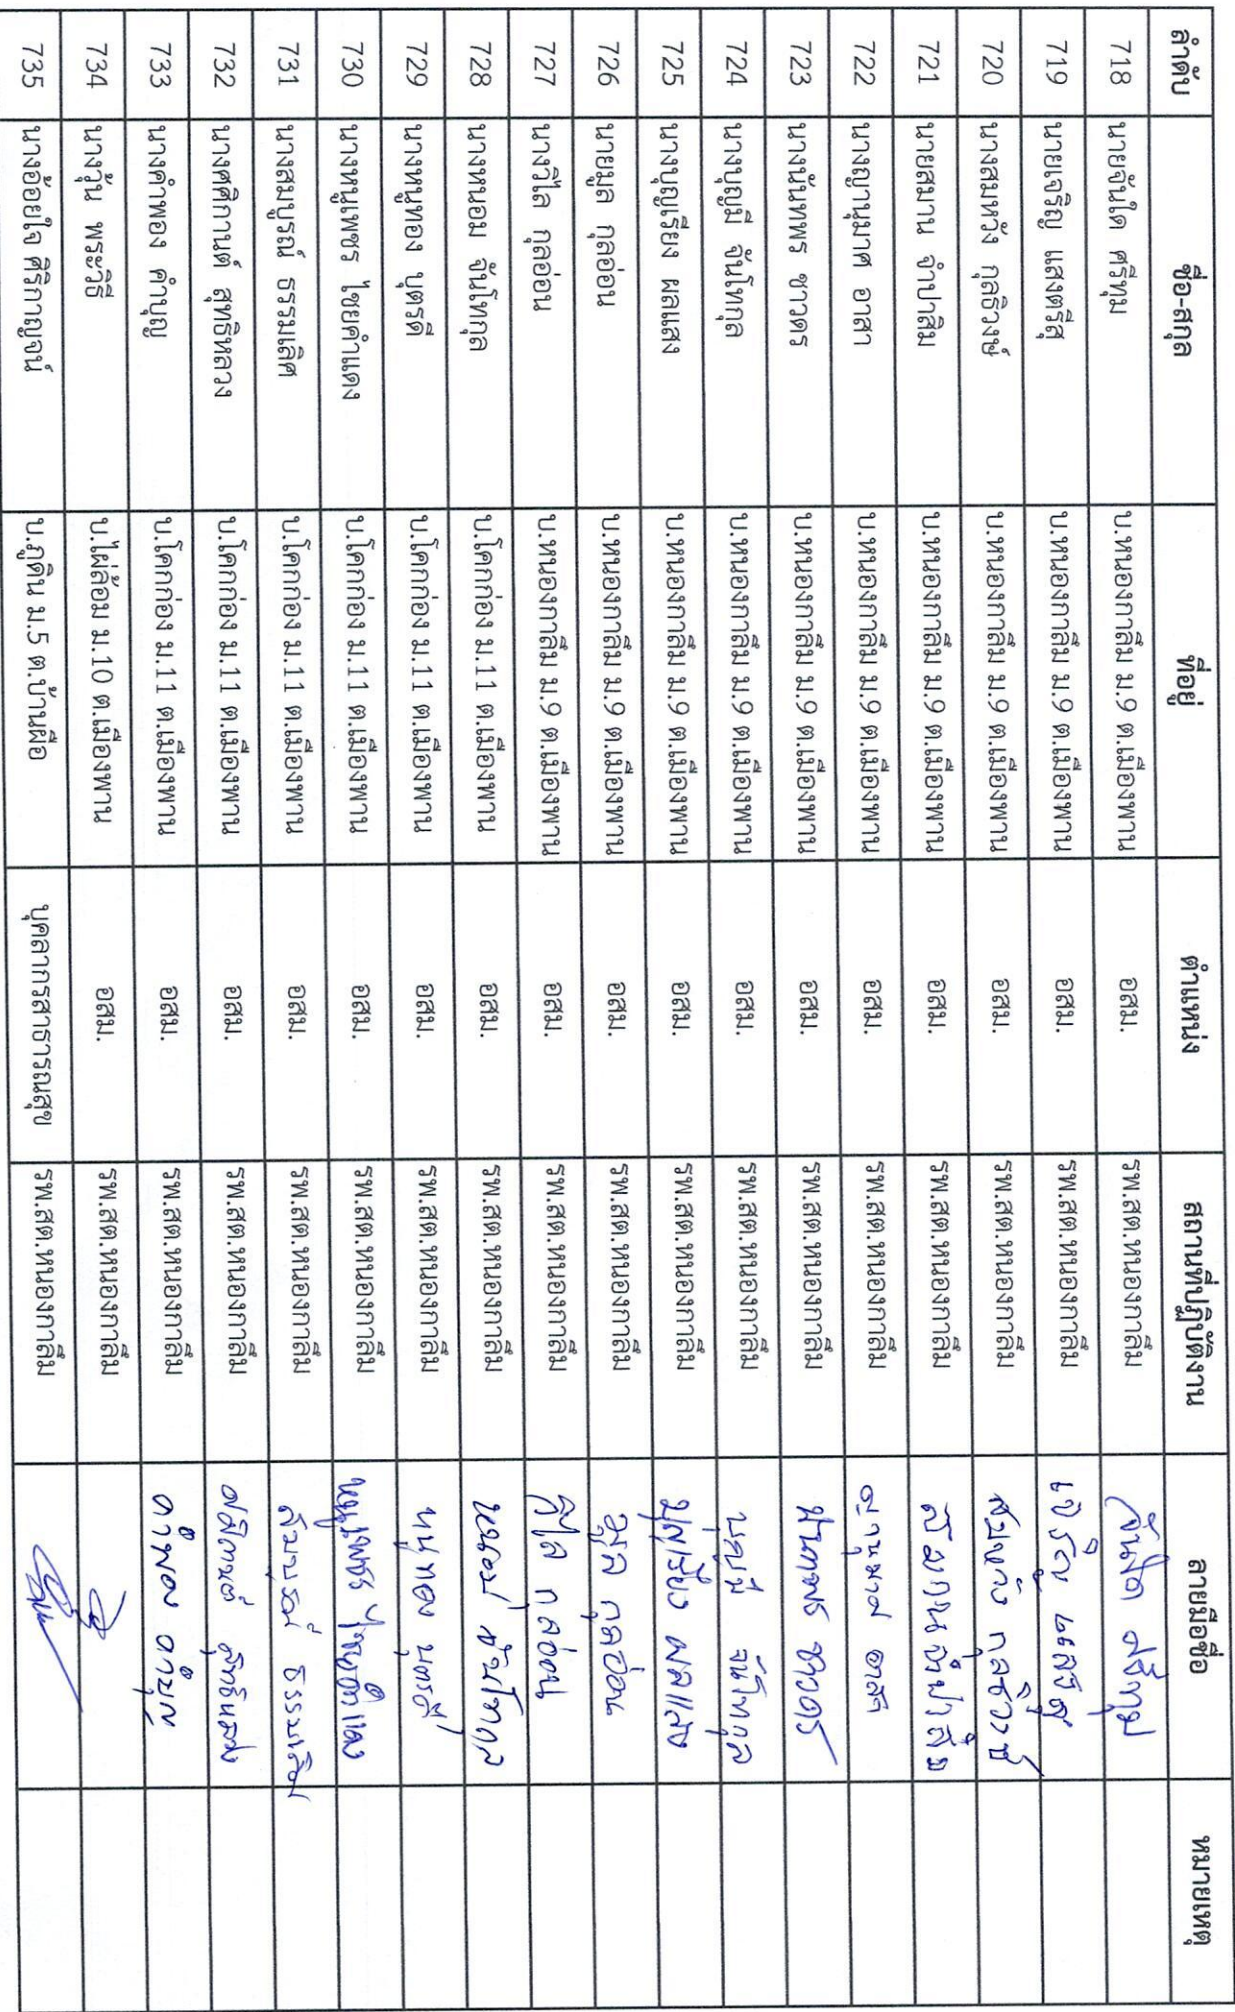 ลำดับ ชื่อ-สกุล ที่อยู่ ตำแหน่ง สถานที่ปฏิบัติงาน ลายมือชื่อ หมายเหตุ
718 นายจันใด ศรีทุม บ.หนองกาลึม ม.9 ต.เมืองพาน อสม. รพ.สต.หนองกาลึม จันใด ศรีทุม
719 นายเจริญ แสงตรีสุ บ.หนองกาลึม ม.9 ต.เมืองพาน อสม. รพ.สต.หนองกาลึม เจริญ
720 นางสมหวัง กุลธิวงษ์ บ.หนองกาลึม ม.9 ต.เมืองพาน อสม. รพ.สต.หนองกาลึม สมหวัง กุลธิวงษ์
721 นายสมาน จำปาสิม บ.หนองกาลึม ม.9 ต.เมืองพาน อสม. รพ.สต.หนองกาลึม
722 นางญานุมาศ อาสา บ.หนองกาลึม ม.9 ต.เมืองพาน อสม. รพ.สต.หนองกาลึม ญานุมาศ อาสา
723 นางนันทพร ชาวดร บ.หนองกาลึม ม.9 ต.เมืองพาน อสม. รพ.สต.หนองกาลึม นันทพร ชาวดร
724 นางบุญมี จันโทกุล บ.หนองกาลึม ม.9 ต.เมืองพาน อสม. รพ.สต.หนองกาลึม บุญมี จันโทกุล
725 นางบุญเรียง ผลแสง บ.หนองกาลึม ม.9 ต.เมืองพาน อสม. รพ.สต.หนองกาลึม บุญเรียง ผลแสง
726 นายมูล กุลอ่อน บ.หนองกาลึม ม.9 ต.เมืองพาน อสม. รพ.สต.หนองกาลึม มูล กุลอ่อน
727 นางวิไล กุลอ่อน บ.หนองกาลึม ม.9 ต.เมืองพาน อสม. รพ.สต.หนองกาลึม วิไล กุลอ่อน
728 นางหนอม จันโทกุล บ.โคกก่อง ม.11 ต.เมืองพาน อสม. รพ.สต.หนองกาลึม หนอม จันโทกุล
729 นางหนูทอง บุตรดี บ.โคกก่อง ม.11 ต.เมืองพาน อสม. รพ.สต.หนองกาลึม หนูทอง บุตรดี
730 นางหนูเพชร ไชยคำแดง บ.โคกก่อง ม.11 ต.เมืองพาน อสม. รพ.สต.หนองกาลึม หนูเพชร ไชยคำแดง
731 นางสมบูรณ์ ธรรมเลิศ บ.โคกก่อง ม.11 ต.เมืองพาน อสม. รพ.สต.หนองกาลึม สมบูรณ์
732 นางศศิกานต์ สุทธิหลวง บ.โคกก่อง ม.11 ต.เมืองพาน อสม. รพ.สต.หนองกาลึม ศศิกานต์ สุทธิหลวง
733 นางคำพอง คำบุญ บ.โคกก่อง ม.11 ต.เมืองพาน อสม. รพ.สต.หนองกาลึม คำพอง คำบุญ
734 นางวุ้น พระวิธี บ.ไผ่ล้อม ม.10 ต.เมืองพาน อสม. รพ.สต.หนองกาลึม
735 นางอ้อยใจ ศิริกาญจน์ บ.ภูดิน ม.5 ต.บ้านผือ บุคลากรสาธารณสุข รพ.สต.หนองกาลึม